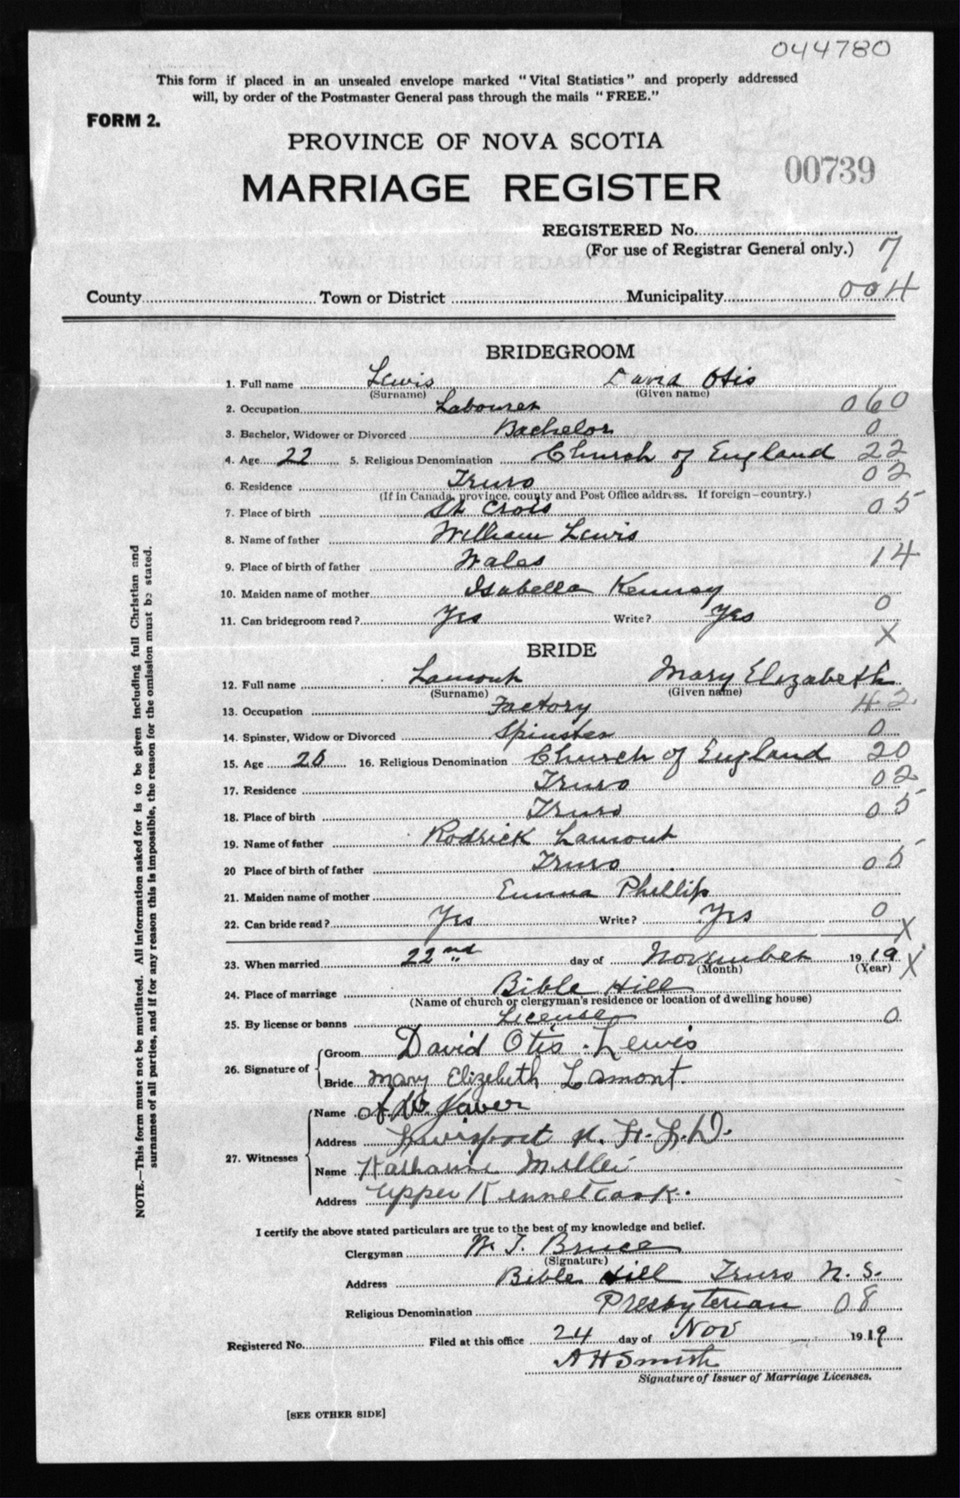 044780
This form if placed in an unsealed envelope marked "Vital Statistics" and properly addressed
will, by order of the Postmaster General pass through the mails "FREE."
FORM 2.
PROVINCE OF NOVA SCOTIA
00739
MARRIAGE REGISTER
REGISTERED No.
(For use of Registrar General only.)
7
County Town or District Municipality 004
BRIDEGROOM
1. Full name Lewis David Otis
(Surname) (Given name)
2. Occupation Labourer 060
3. Bachelor, Widower or Divorced Bachelor 0
4. Age 22 5. Religious Denomination Church of England 22
6. Residence Truro 02
(If in Canada, province, county and Post Office address. If foreign-country.)
7. Place of birth St Crois 05
8. Name of father William Lewis
9. Place of birth of father Wales 14
10. Maiden name of mother Isabella
11. Can bridegroom read? Yes Write? Yes 0
X
BRIDE
12. Full name Lamont Mary Elizabeth
(Surname) (Given name)
13. Occupation Factory 42
14. Spinster, Widow or Divorced Spinster 0
15. Age 20 16. Religious Denomination Church of England 20
17. Residence Truro 02
18. Place of birth Truro 05
19. Name of father Rodrick Lamont
20 Place of birth of father Truro 05
21. Maiden name of mother Emma Phillip
22. Can bride read? Yes Write? Yes 0
X
23. When married 22nd day of November 1919 X
(Month) (Year)
24. Place of marriage Bible Hill
(Name of church or clergyman's residence or location of dwelling house)
25. By license or banns License 0
26. Signature of Groom David Otis Lewis
Bride Mary Elizebeth Lamont
27. Witnesses Name
Address
Name Katharine Miller
Address Upper Kennetcook.
I certify the above stated particulars are true to the best of my knowledge and belief.
Clergyman Bruce
(Signature)
Address Bible Hill Truro N. S.
Religious Denomination Presbyterian 08
Registered No. Filed at this office 24 day of Nov 1919
A H Smith
Signature of Issuer of Marriage Licenses.
[SEE OTHER SIDE]
NOTE.—This form must not be mutilated. All information asked for is to be given including full Christian and
surnames of all parties, and if for any reason this is impossible, the reason for the omission must be stated.